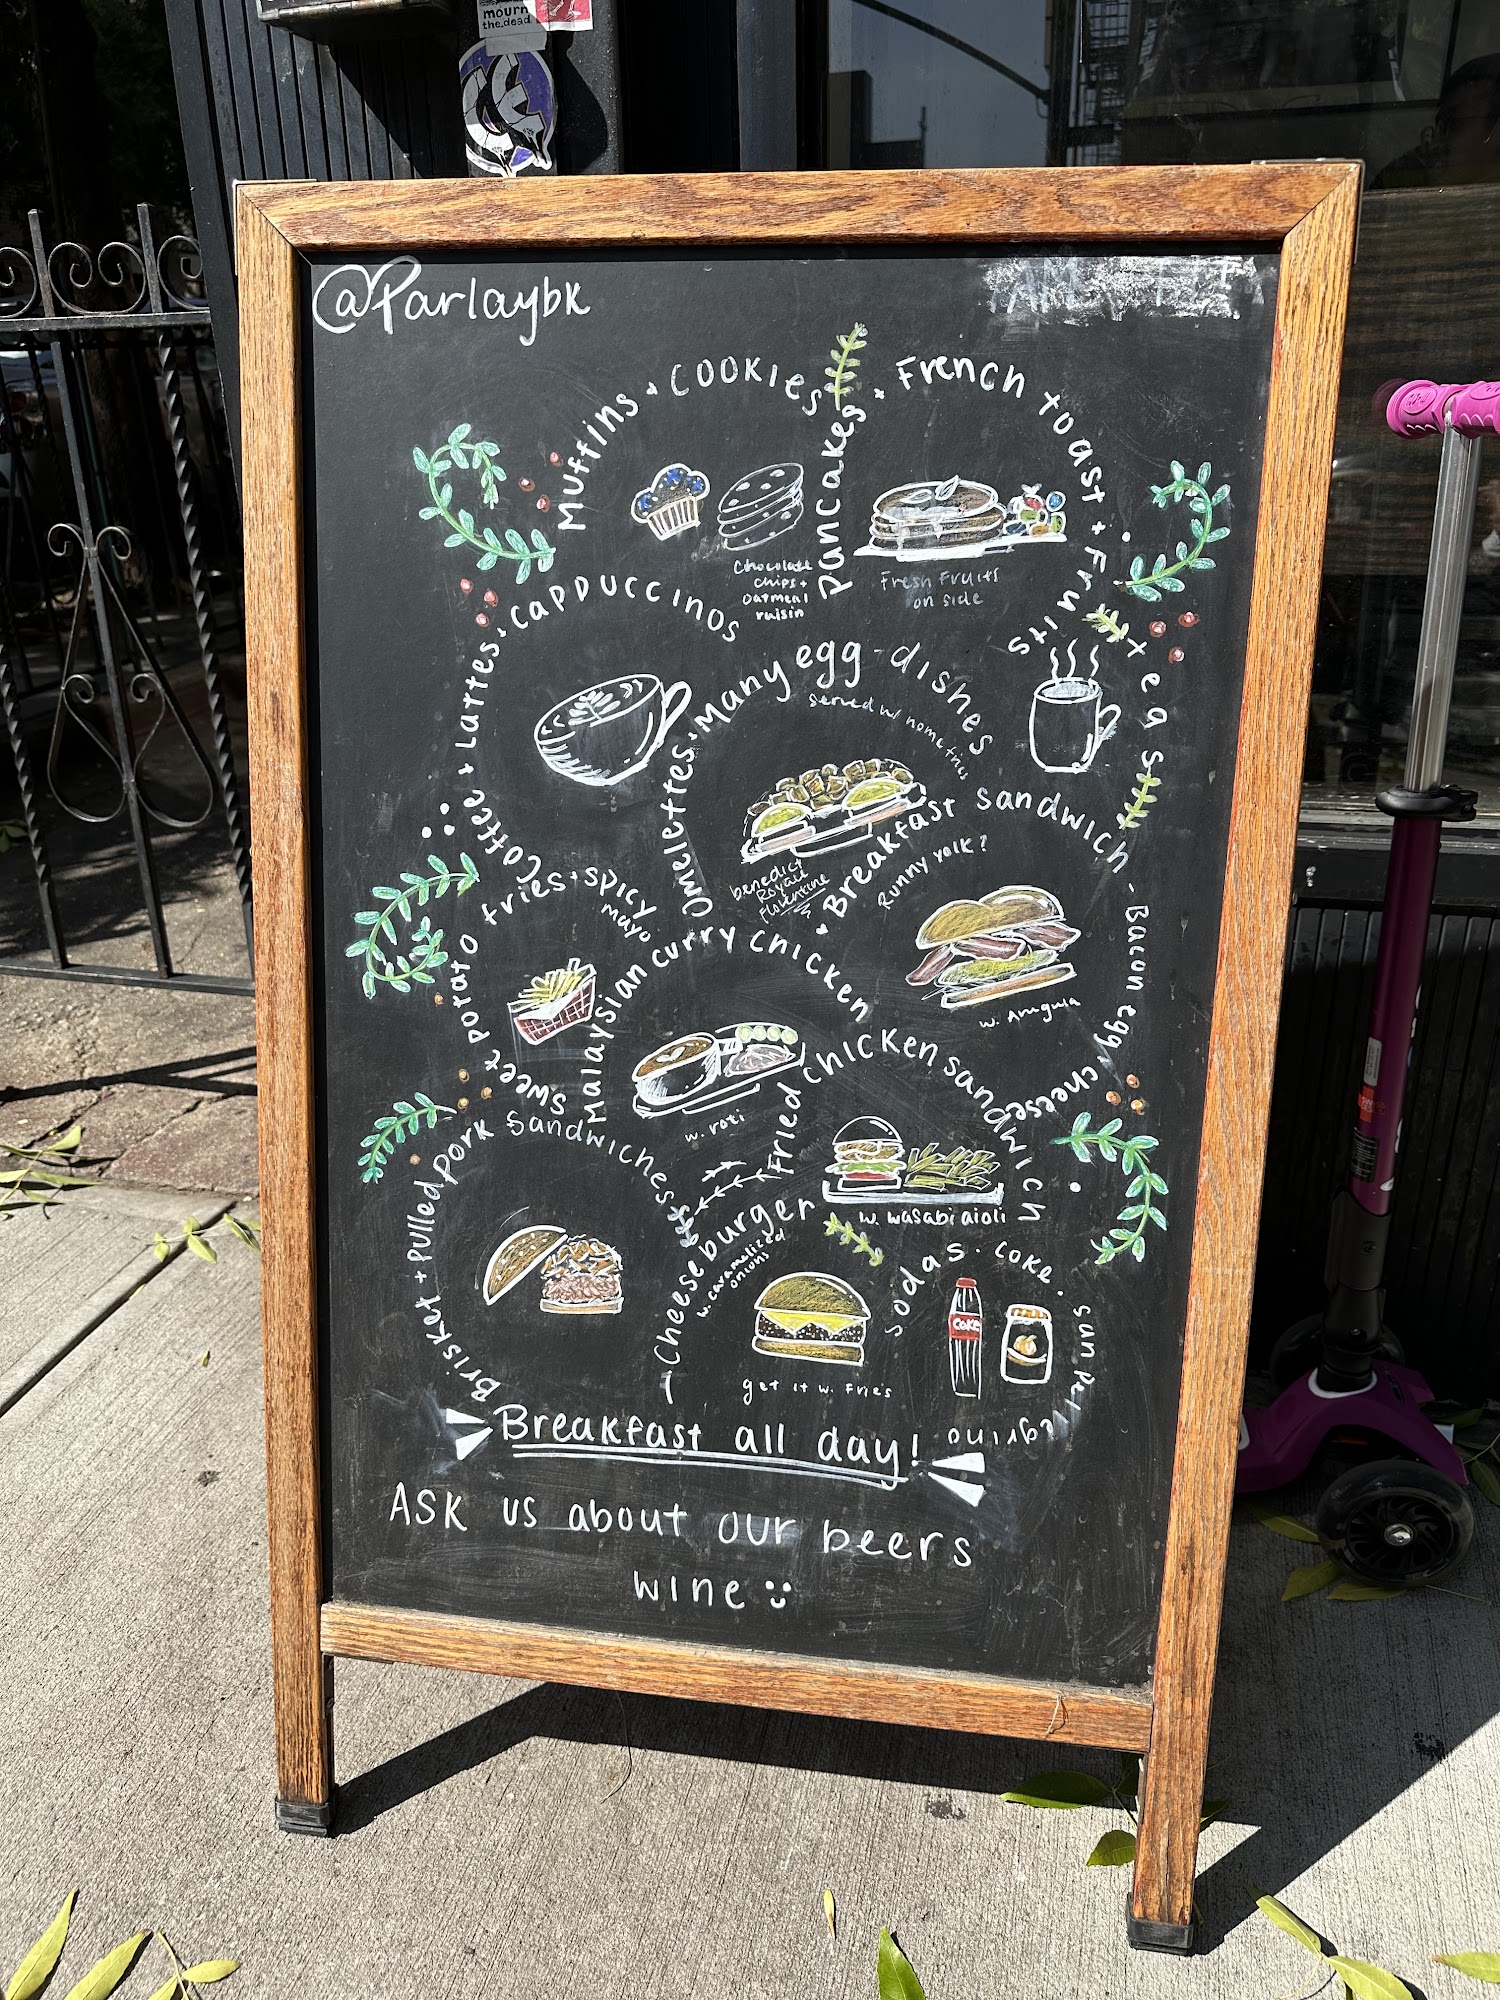 mourn
the.dead
@Parlaybk
Muffins + COOKIES
Chocolate
chips +
oatmeal
raisin
pancakes + French toast + Fruits
Fresh Fruits
on side
+ eggs
Coffee + Lattes + cappuccinos
Omelettes + Many egg - dishes
served w/ home fries
benedict
Royale
Florentine
+ Breakfast sandwich - Bacon egg + cheese
Runny yolk?
w. Arugula
sweet potato fries + spicy
mayo
Malaysian curry chicken
w. roti
Fried chicken sandwich
w. wasabi aioli
Brisket + pulled pork sandwiches
Cheese burger
w. caramelized
onions
get it w. Fries
sodas. coke. san pellegrino
COKE
Breakfast all day!
ASK us about our beers
wine